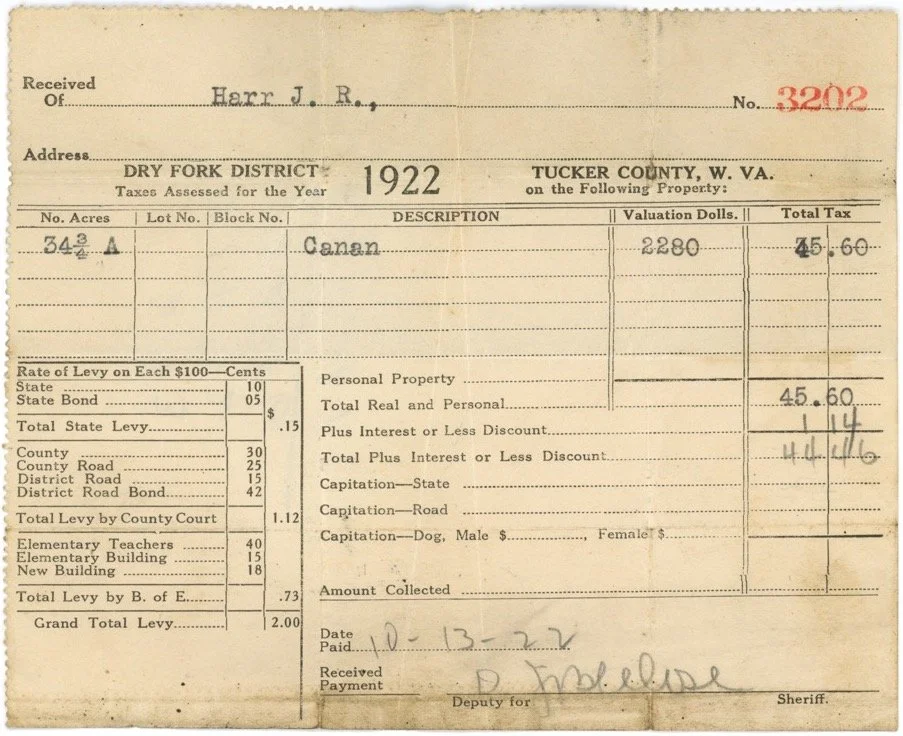 Received
Of Harr J. R., No. 3202
Address
DRY FORK DISTRICT 1922 TUCKER COUNTY, W. VA.
Taxes Assessed for the Year on the Following Property:
No. Acres Lot No. Block No. DESCRIPTION Valuation Dolls. Total Tax
34¾ A Canan 2280 45.60
Rate of Levy on Each $100—Cents
State 10
State Bond 05
$
Total State Levy .15
County 30
County Road 25
District Road 15
District Road Bond 42
Total Levy by County Court 1.12
Elementary Teachers 40
Elementary Building 15
New Building 18
Total Levy by B. of E. .73
Grand Total Levy 2.00
Personal Property
Total Real and Personal 45.60
Plus Interest or Less Discount 1 14
Total Plus Interest or Less Discount 44 46
Capitation—State
Capitation—Road
Capitation—Dog, Male $ , Female $
Amount Collected
Date
Paid 10-13-22
Received
Payment
Deputy for Sheriff.